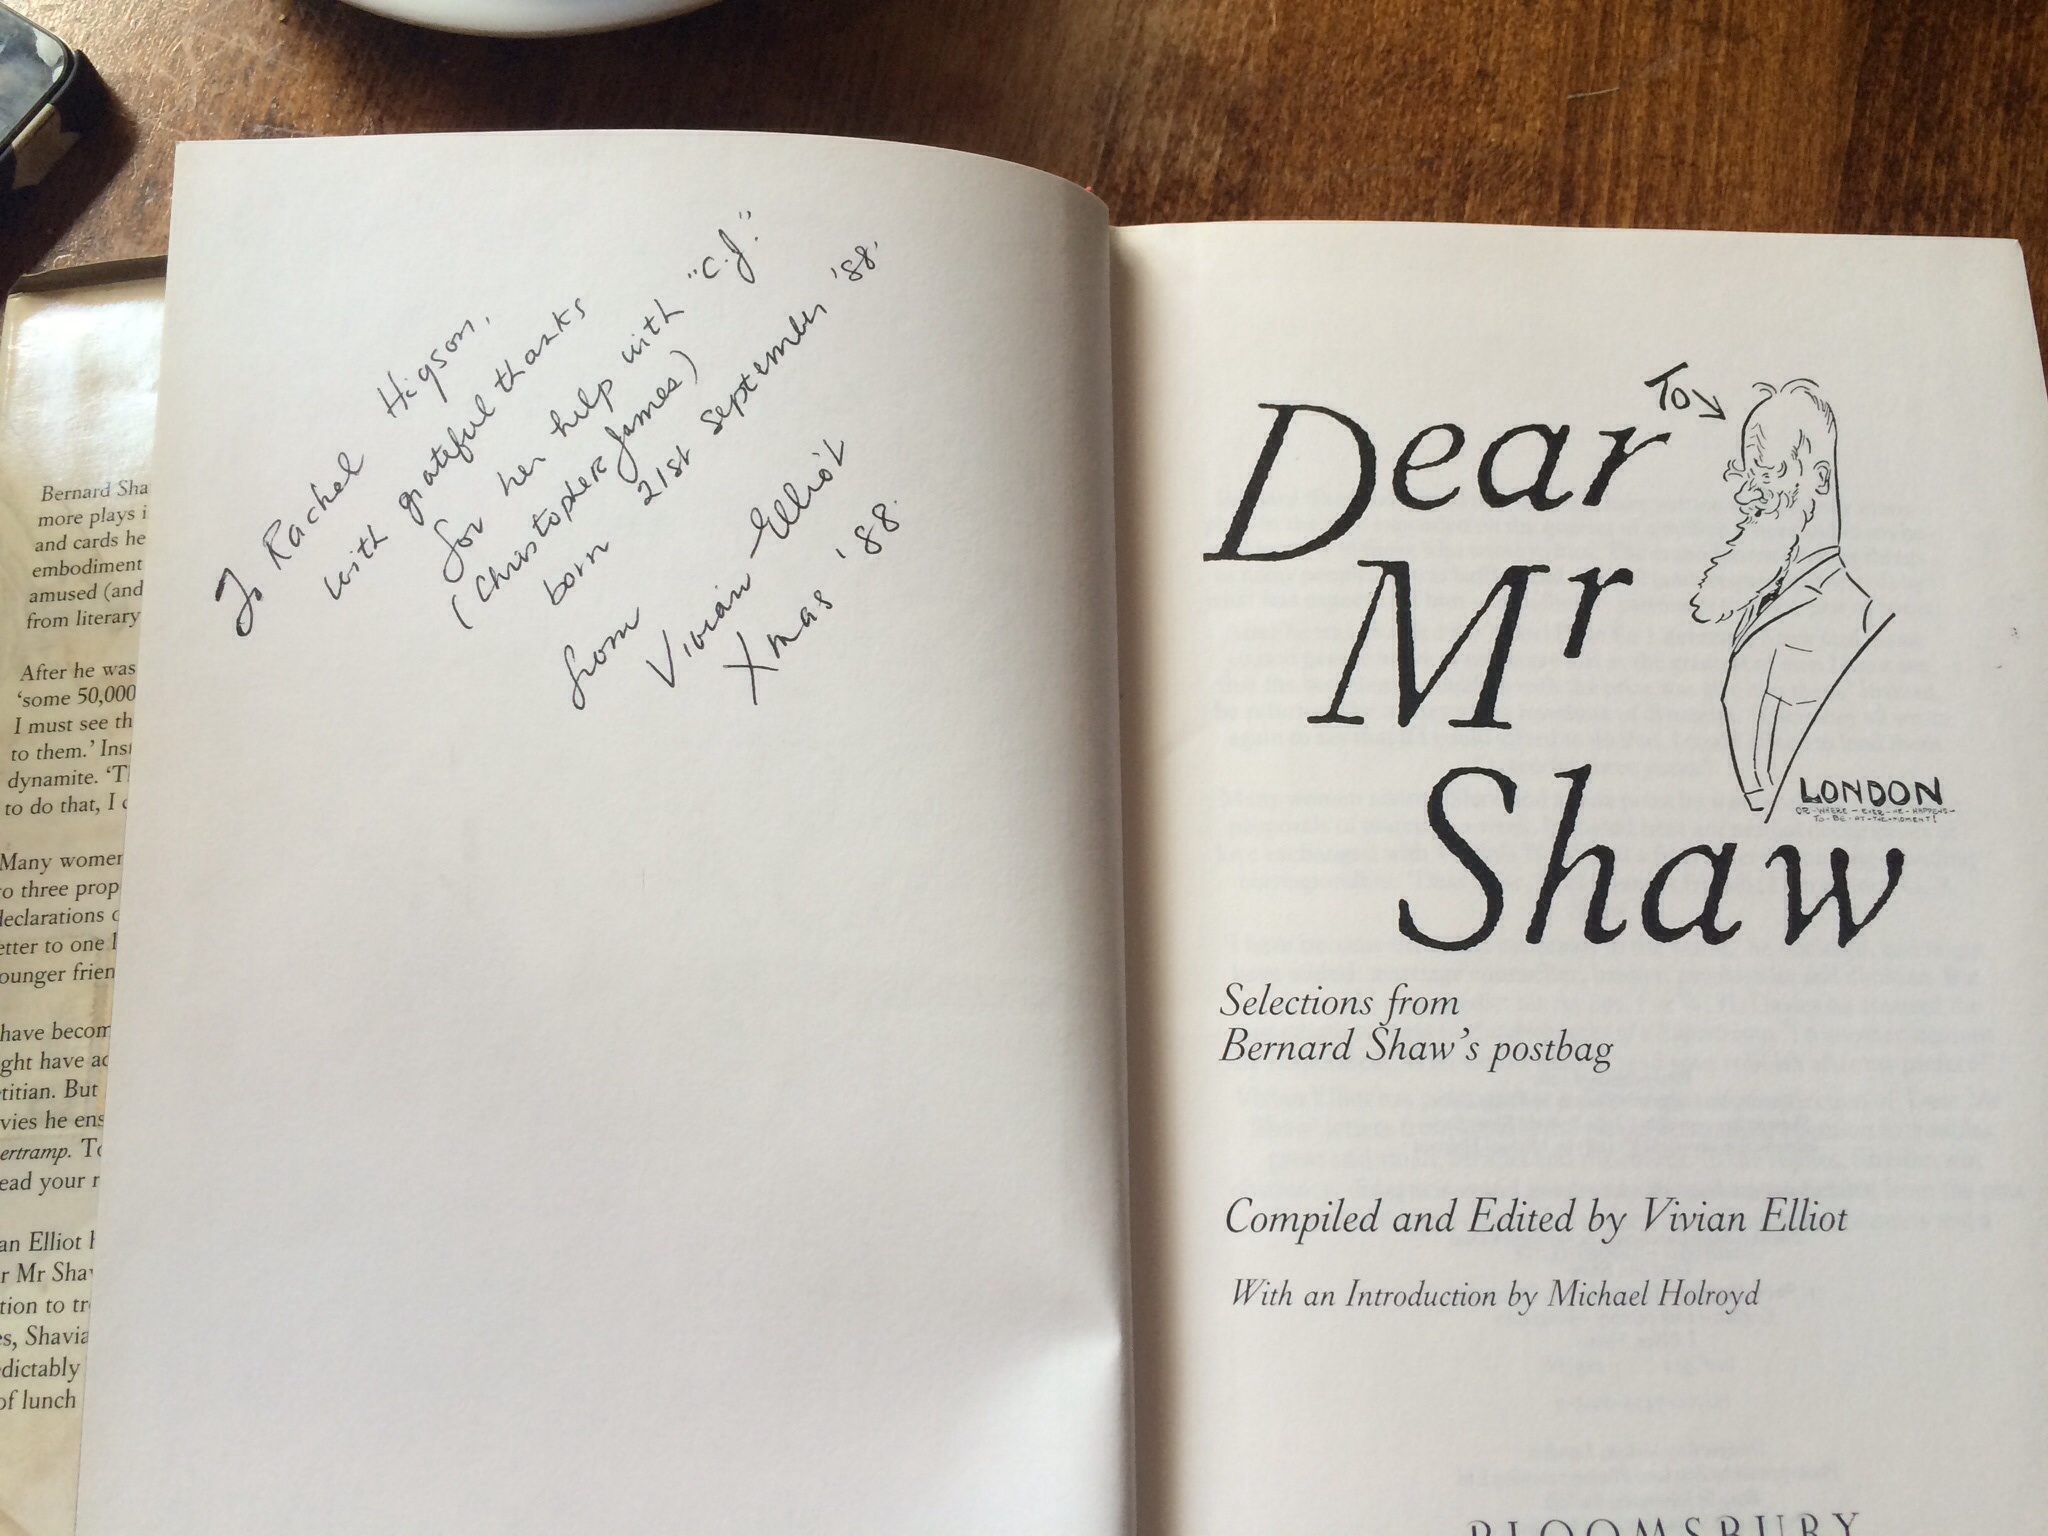 Bernard Sha
more plays i
and cards he
embodiment
amused (and
from literary
After he was
'some 50,000
I must see th
to them.' Inst
dynamite. 'T
to do that, I c
Many women
to three prop
declarations o
etter to one l
ounger frien
have becom
ght have ac
etitian. But
vies he ens
ertramp. To
ead your r
an Elliot h
r Mr Shaw
tion to tr
es, Shavia
edictably
of lunch
To Rachel Higson,
with grateful thanks
for her help with "C.J."
(Christopher James)
born 21st September '88.
from
Vivian Elliot
Xmas '88.
To
Dear
Mr
Shaw
LONDON
OR-WHERE-EVER-HE-HAPPENS-
TO-BE-AT-THE-MOMENT!
Selections from
Bernard Shaw's postbag
Compiled and Edited by Vivian Elliot
With an Introduction by Michael Holroyd
BLOOMSBURY